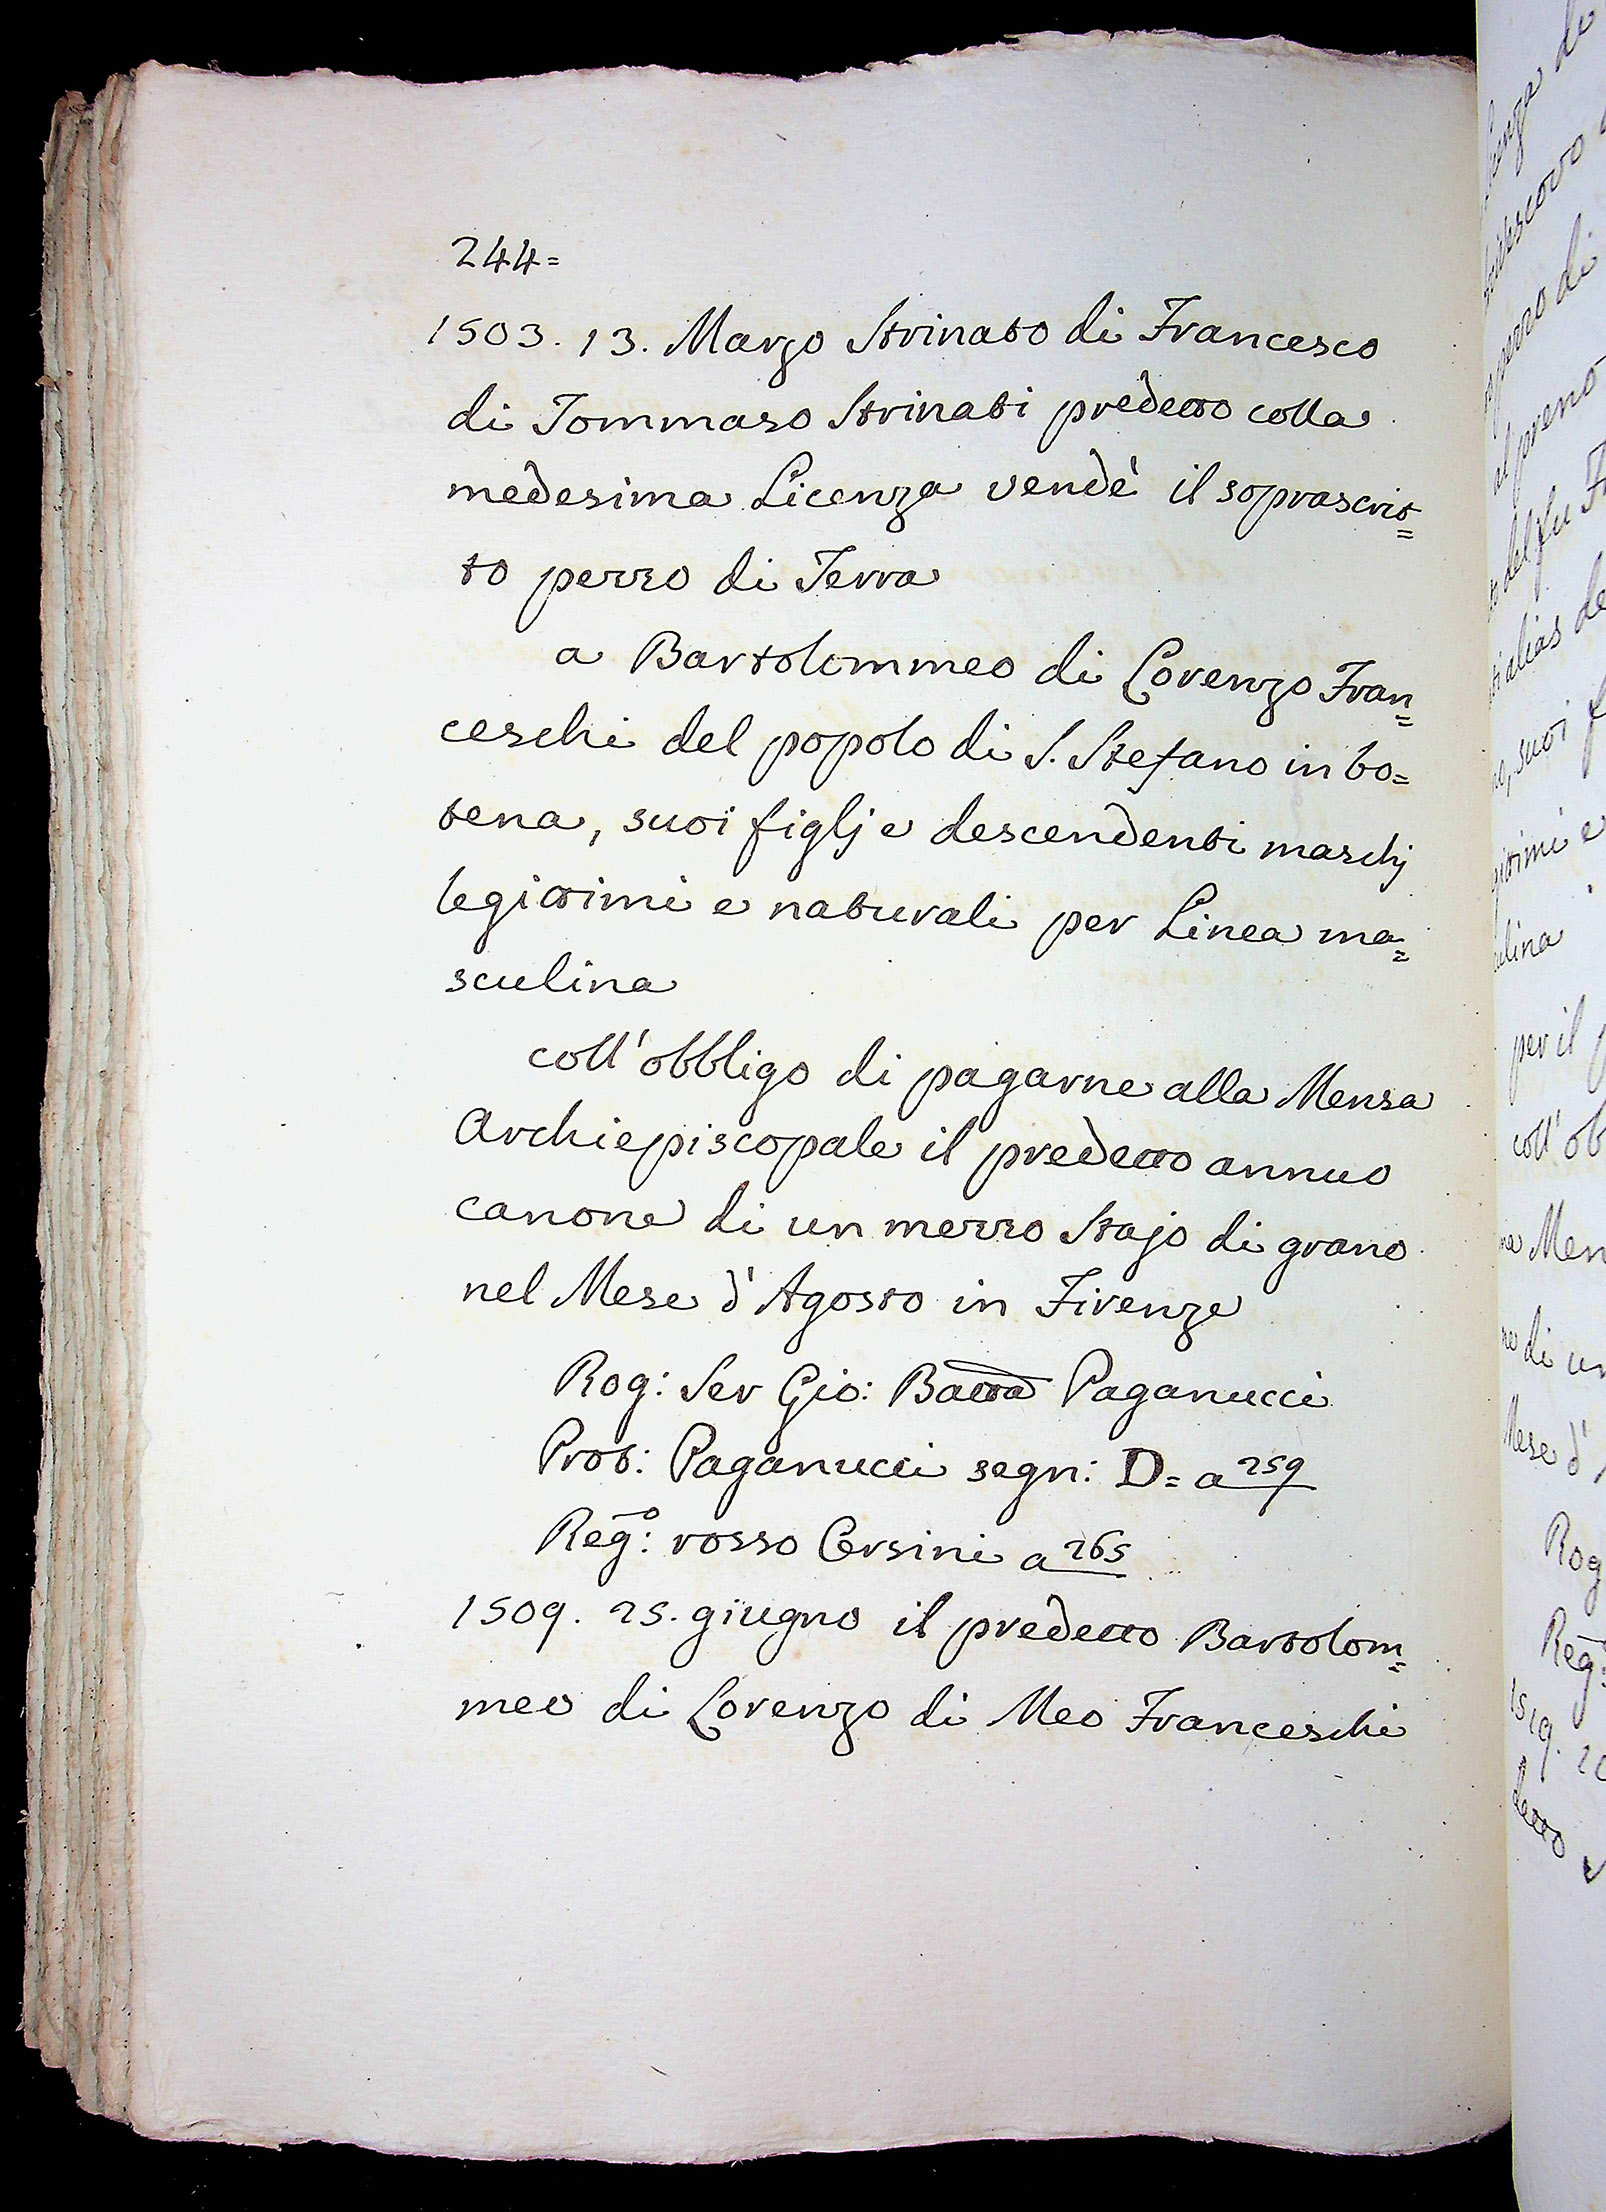 244=
1503. 13. Marzo Strinato di Francesco
di Tommaso Strinati predetto colla
medesima Licenza vendè il soprascrit=
to pezzo di Terra
a Bartolommeo di Lorenzo Fran=
ceschi del popolo di S. Stefano in bo=
tena, suoi figlj e descendenti maschj
legittimi e naturali per Linea ma=
sculina
coll'obbligo di pagarne alla Mensa
Archiepiscopale il predetto annuo
canone di un mezzo Stajo di grano
nel Mese d'Agosto in Firenze
Rog: Ser Gio: Batta Paganucci
Prot: Paganucci segn: D= a 259
Reg.º: rosso Corsini a 265
1509. 25. giugno il predetto Bartolom=
meo di Lorenzo di Meo Franceschi
per il
coll'ob
Men
di un
Mese d'
Rog
Reg:
1519. 20